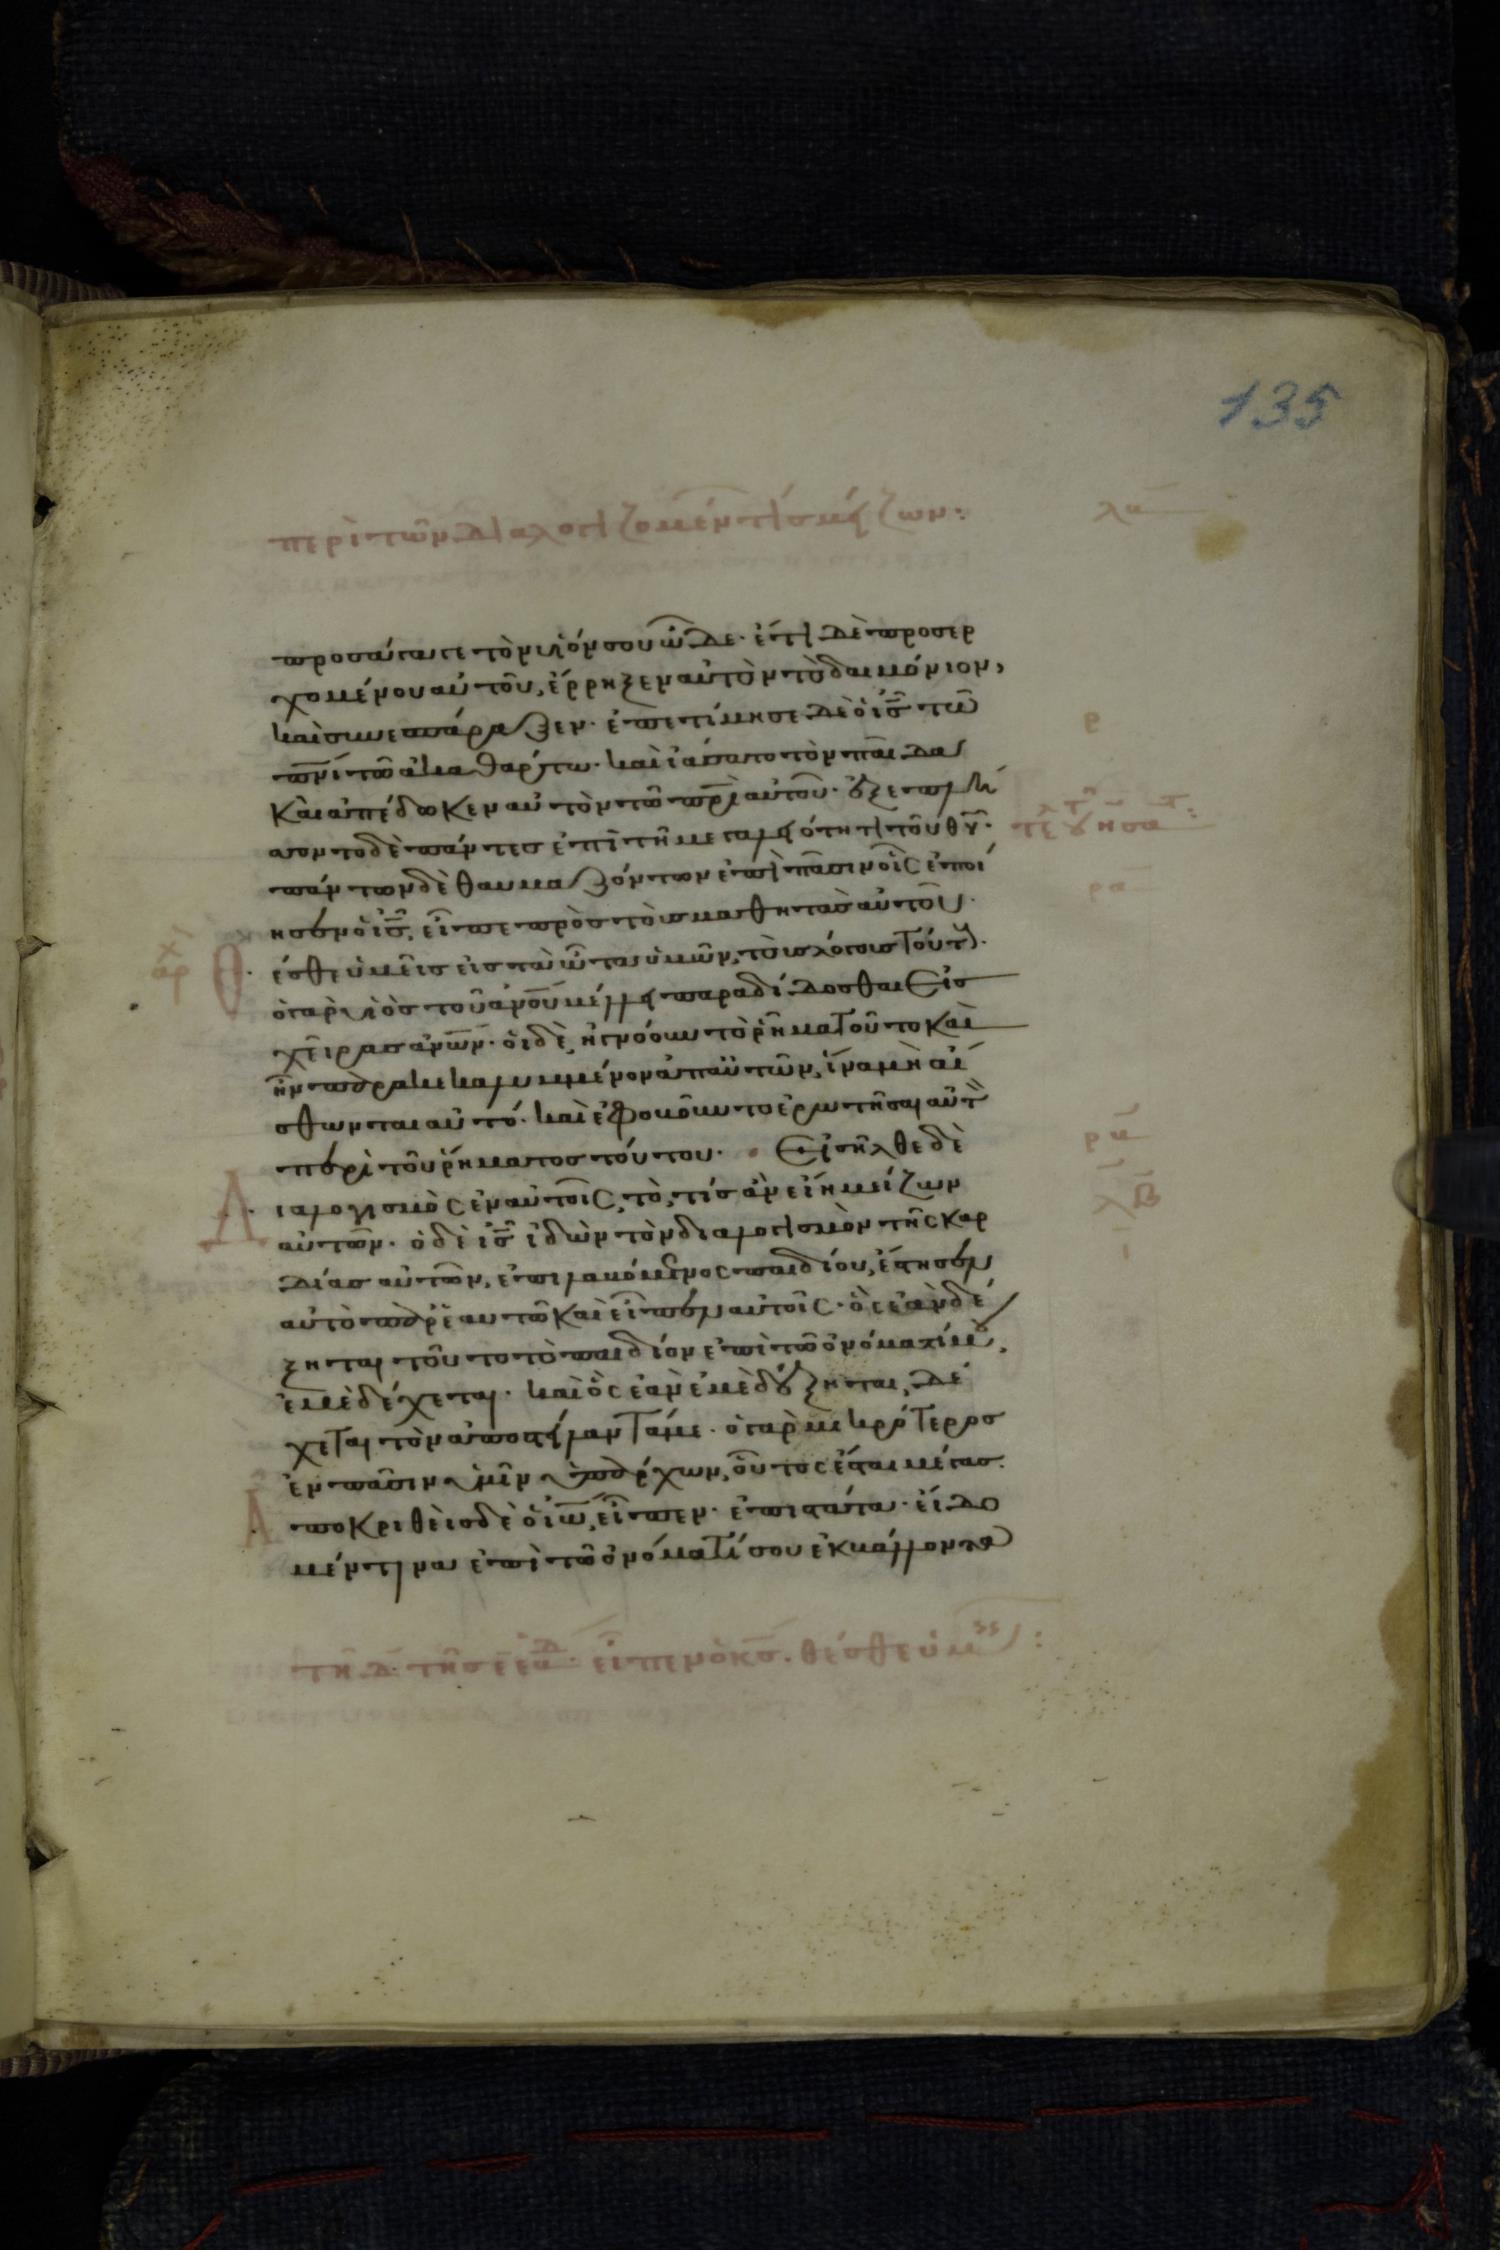 135
περὶ τῶν διαλογιζομέν τίς μείζων:
λα
προσάγαγε τὸν υἱόν σου ὧδε· ἔτι δὲ προσερ
χομένου αὐτοῦ, ἔρρηξεν αὐτὸν τὸ δαιμόνιον,
καὶ συνεσπάραξεν· ἐπετίμησε δὲ ὁ ις τῶ
πνι τῶ ἀκαθάρτω· καὶ ἰάσατο τὸν παῖδα
καὶ ἀπέδωκεν αὐτὸν τῶ πρι αὐτοῦ· ἐξεπλή
σσοντο δὲ πάντες ἐπὶ τῆ μεγαλειότητι τοῦ θυ·
πάντων δὲ θαυμαζόντων ἐπὶ πᾶσιν οἷς ἐποί
ησεν ὁ ις, εἶπε πρὸς τοὺς μαθητὰς αὐτοῦ·
Θέσθε ὑμεῖς εἰς τὰ ὦτα ὑμῶν, τοὺς λόγους τούτ·
ὁ γὰρ υἱὸς τοῦ ανου μέλλει παραδίδοσθαι εἰς
χεῖρας ανων· οἱ δὲ ἠγνόουν τὸ ῥῆμα τοῦτο καὶ
ἦν παρακεκαλυμμένον ἀπ' αὐτῶν, ἵνα μὴ αἴ
σθωνται αὐτό· καὶ ἐφοβοῦντο ἐρωτῆσαι αὐτ
περὶ τοῦ ῥήματος τούτου· Εἰσῆλθε δὲ
Διαλογισμὸς ἐν αὐτοῖς, τὸ, τίς ἂν εἴη μείζων
αὐτῶν· ὁ δὲ ις ἰδὼν τὸν διαλογισμὸν τῆς καρ
δίας αὐτῶν, ἐπιλαβόμενος παιδίου, ἔστησεν
αὐτὸ παρ' ἑαυτῶ καὶ εἶπεν αὐτοῖς· ὃς ἐὰν δέ
ξηται τοῦτο τὸ παιδίον ἐπὶ τῶ ὀνόματί μου,
ἐμὲ δέχεται· καὶ ὃς ἐὰν ἐμὲ δέξηται, δέ
χεται τὸν ἀποστείλαντά με· ὁ γὰρ μικρότερος
ἐν πᾶσιν ὑμῖν ὑπάρχων, οὗτος ἔσται μέγας·
Ἀποκριθεὶς δὲ ὁ ιω, εἶπεν· ἐπιστάτα· εἴδο
μέν τινα ἐπὶ τῶ ὀνόματί σου ἐκβάλλοντα
ρ
ρα
ρβ
τῆ δ τῆς ε εβδ· εἶπεν ὁ κς· θέσθε ὑμ: